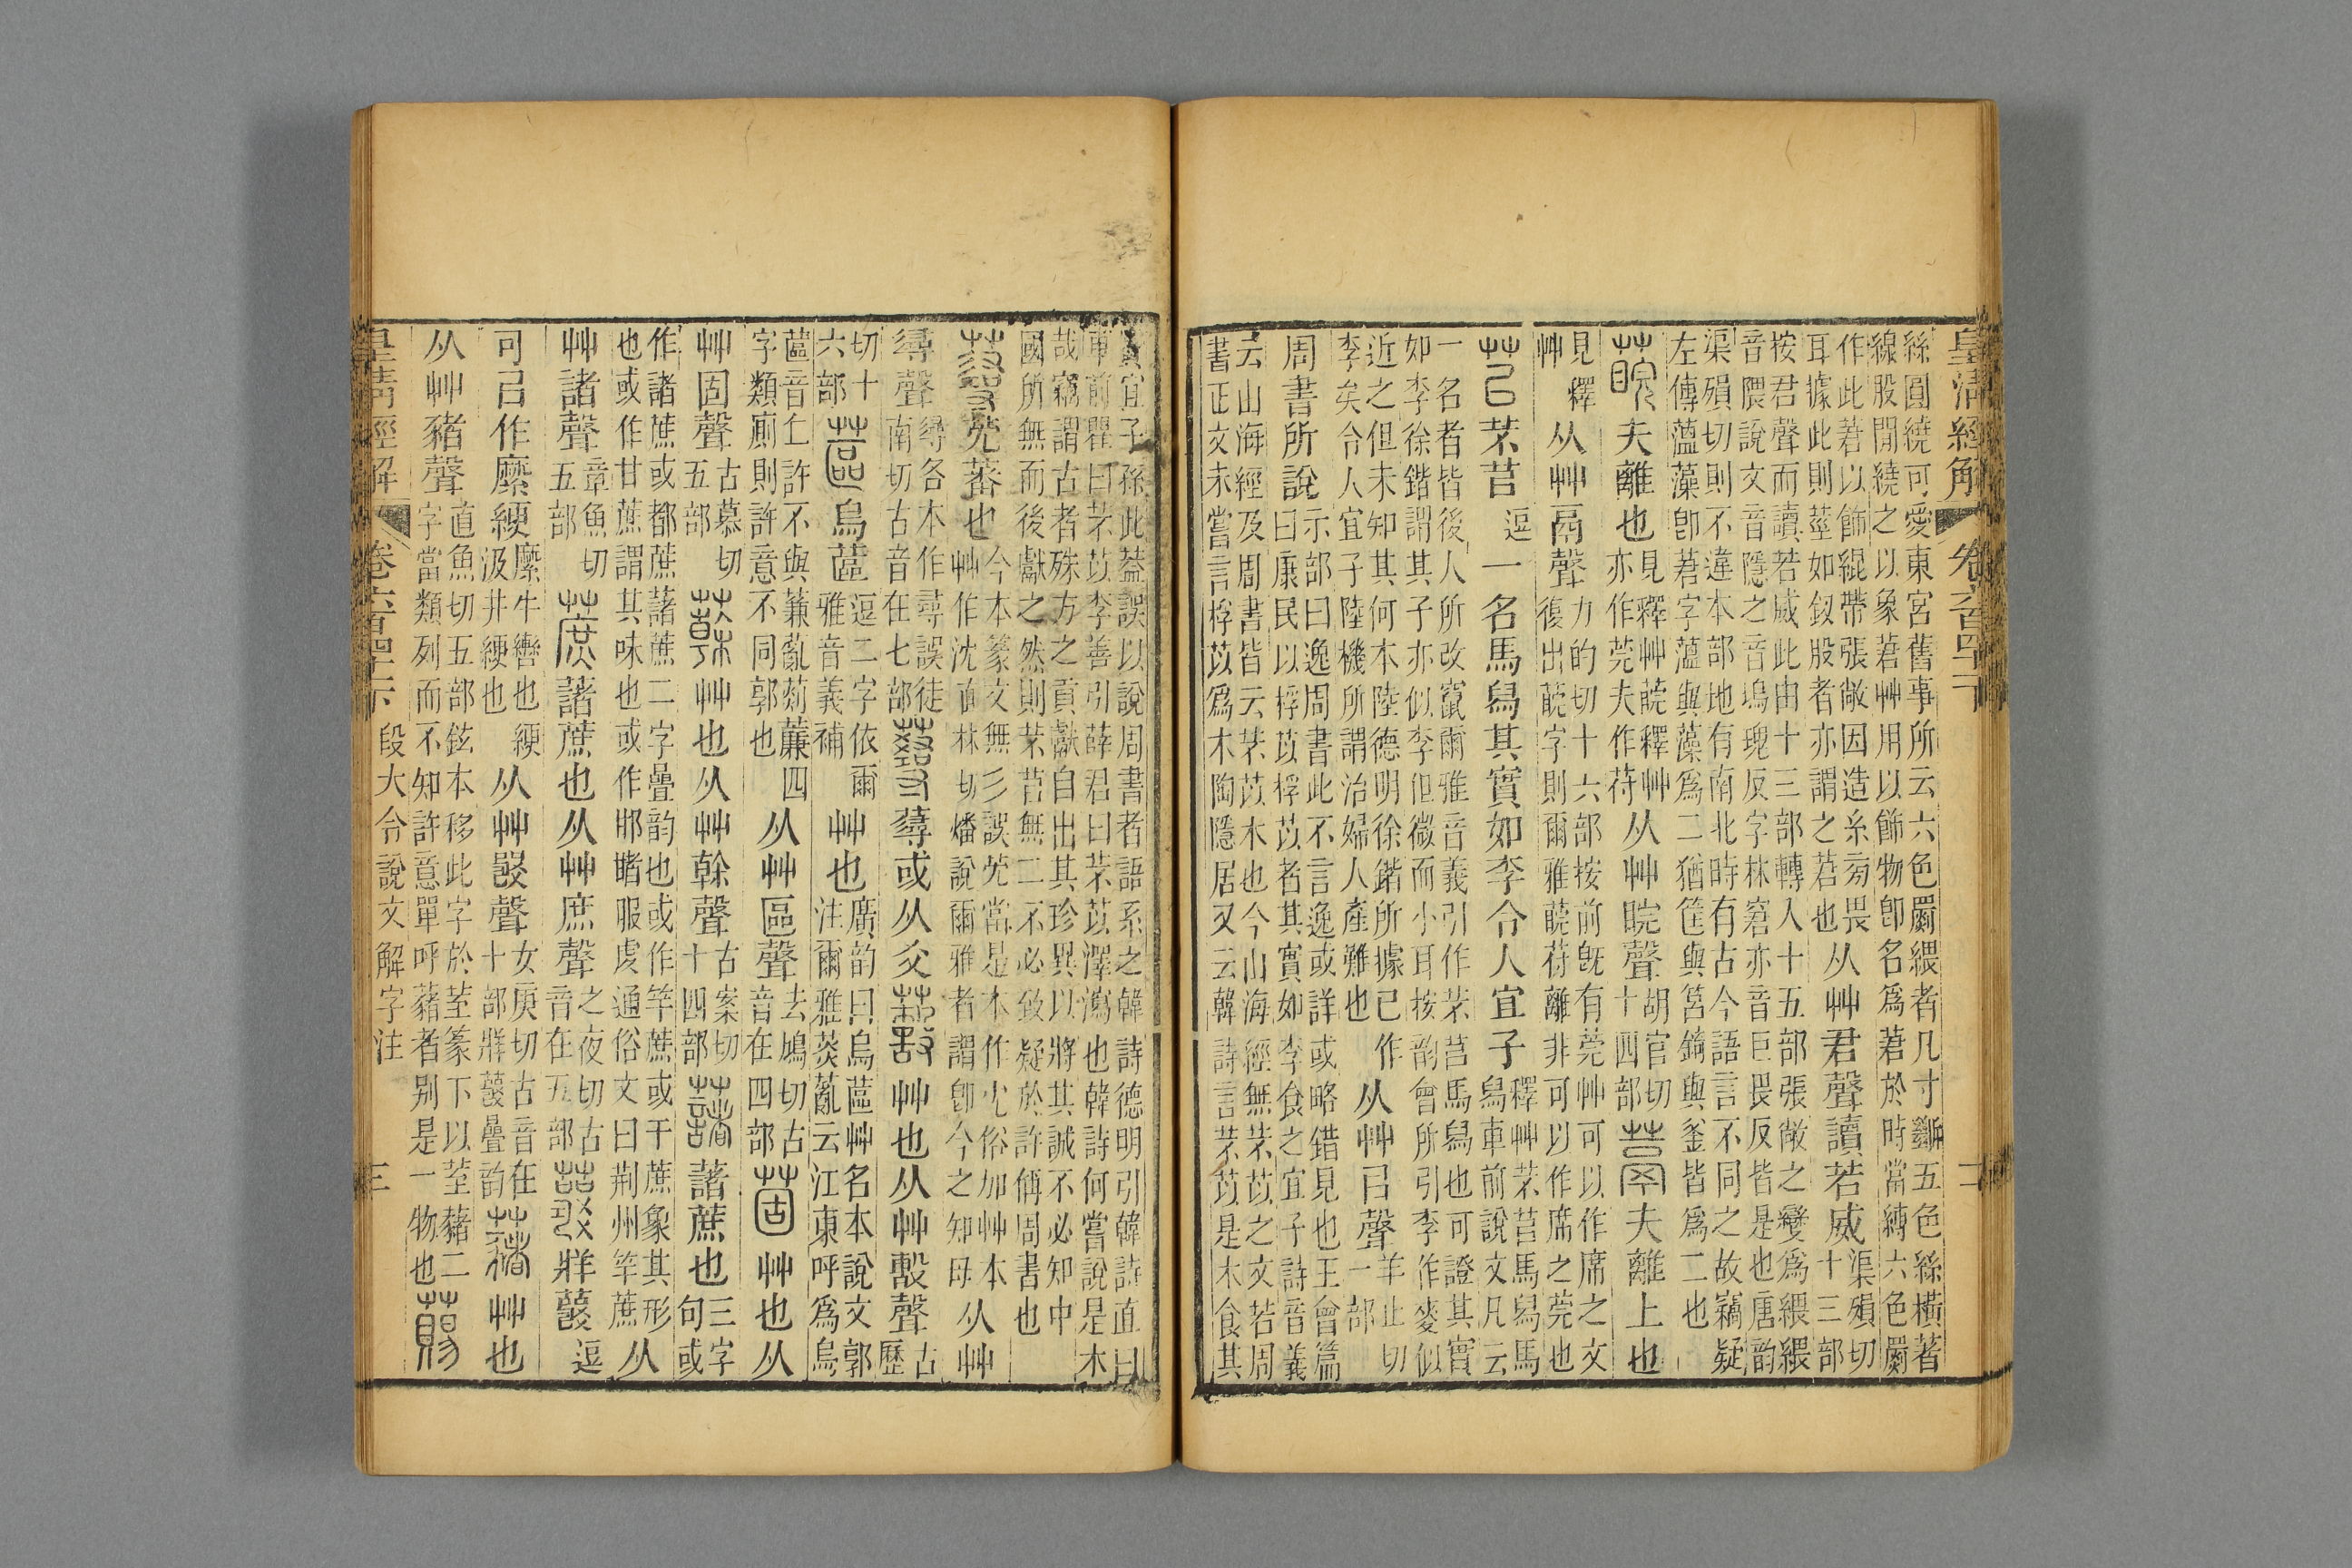 皇清經解 卷六百四十一下 二
絲圓繞可愛東宮舊事所云六色罽者凡寸斷五色絲橫著線股閒繞之以象莙艸用以飾物卽名爲莙於時當縛六色罽
作此莙以飾緄帶張敞因造糸旁畏耳據此則莖如釵股者亦謂之莙也从艸君聲讀若威渠殞切十三部
按君聲而讀若威此由十三部轉入十五部張敞之變爲音隈說文音隱之音塢瑰反字林窘亦音巨畏反皆是也唐韵
渠殞切則不違本部地有南北時有古今語言不同之故竊疑左傳薀藻卽莙字薀與藻爲二猶筐與筥錡與釜皆爲二也
䓵夫離也見釋艸䓵釋艸亦作莞夫作苻从艸睆聲胡官切十四部蒚夫離上也
見釋艸从艸鬲聲力的切十六部按前旣有莞艸可以作席之文復出䓵字則爾雅䓵苻離非可以作席之莞也
苢芣苢逗一名馬舄其實如李令人宜子釋艸芣苢馬舄馬舄車前說文凡云
一名者皆後人所改竄爾雅音義引作芣苢馬舄也可證其實如李徐鍇謂其子亦似李但微而小耳按韵會所引李作麥似
近之但未知其何本陸德明徐鍇所據已作李矣令人宜子陸機所謂治婦人產難也从艸㠯聲羊止切一部
周書所說示部曰逸周書此不言逸或詳或略錯見也王會篇曰康民以桴苡桴苡者其實如李食之宜子詩音義
云山海經及周書皆云芣苡木也今山海經無芣苡之文若周書正文未嘗言桴苡爲木陶隱居又云韓詩言芣苡是木食其
實宜子孫此葢誤以說周書者語系之韓詩德明引韓詩直曰車前瞿曰芣苡李善引薛君曰芣苡澤瀉也韓詩何嘗說是木
哉竊謂古者殊方之貢獻自出其珍異以將其誠不必知中國所無而後獻之然則芣苢無二不必致疑於許偁周書也
蕁芫藩也今本篆文無彡誤芫當是本作冘俗加艸本艸作沈直林切燔說爾雅者謂卽今之知母从艸
𢒫聲𢒫各本作尋誤徒南切古音在七部薚蕁或从爻蔜艸也从艸毄聲古歷
切十六部蓲烏蓲逗二字依爾雅音義補艸也廣韵曰烏蓲艸名本說文郭注爾雅菼薍云江東呼爲烏
蓲音丘許不與蒹薍䓖薕四字類廁則許意不同郭也从艸區聲去鳩切古音在四部菌艸也从
艸固聲古慕切五部艸也从艸榦聲古案切十四部藷藷蔗也三字句或
作諸蔗或都蔗藷蔗二字疊韵也或作竿蔗或干蔗象其形也或作甘蔗謂其味也或作邯䐗服虔通俗文曰荆州竿蔗从
艸諸聲章魚切五部蔗藷蔗也从艸庶聲之夜切古音在五部䕳牂䕳逗
可㠯作縻綆縻牛轡也綆汲井綆也从艸㲋聲女庚切古音在十部牂䕳疊韵艸也
从艸豬聲直魚切五部鉉本移此字於荎篆下以荎藸二字當類列而不知許意單呼藸者别是一物也䔑
皇清經解 卷六百四十一下 段大令說文解字注 三